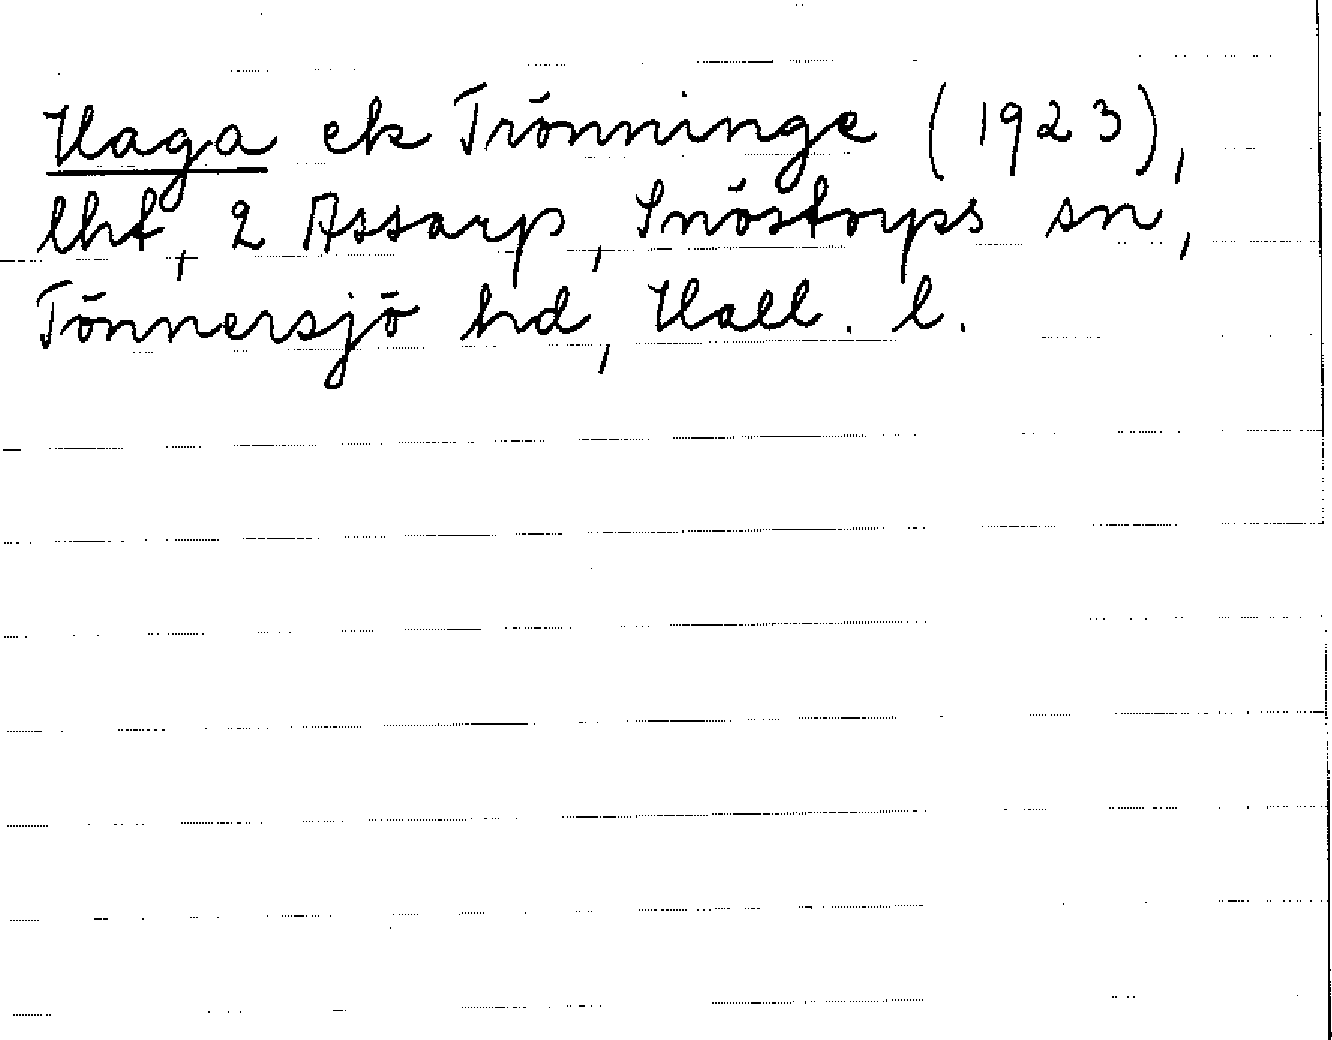 Haga ek Trönninge (1923),
lht, 2 Assarp, Snöstorps sn,
Tönnersjö hd, Hall. l.